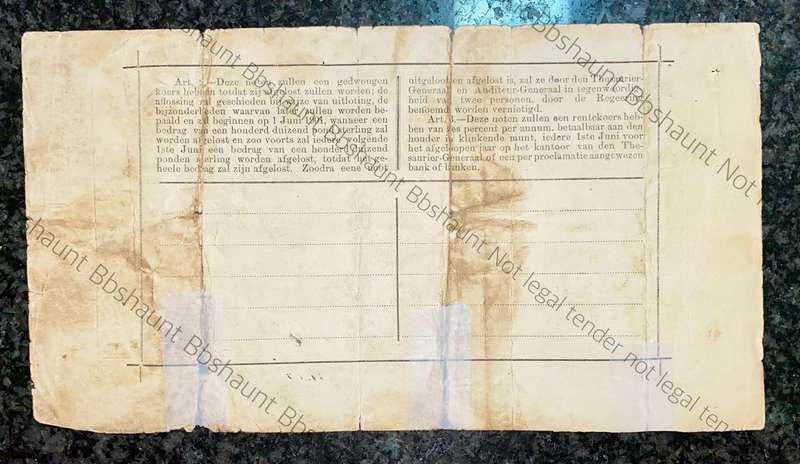 Art. 2.—Deze noten zullen een gedwongen
koers hebben totdat zij afgelost zullen worden; de
aflossing zal geschieden bij wijze van uitloting, de
bijzonderheden waarvan later zullen worden be-
paald en zal beginnen op 1 Juni 1901, wanneer een
bedrag van een honderd duizend pond sterling zal
worden afgelost en zoo voorts zal iedere volgende
1ste Juni een bedrag van een honderd duizend
ponden sterling worden afgelost, totdat het ge-
heele bedrag zal zijn afgelost. Zoodra eene
uitgeloot en afgelost is, zal ze door den Thesaurier-
Generaal en Auditeur-Generaal in tegenwoordig-
heid van twee personen, door de Regeering
benoemd worden vernietigd.
Art. 3.—Deze noten zullen een rentekoers heb-
ben van zes percent per annum, betaalbaar aan den
houder in klinkende munt, iedere 1ste Juni voor
het afgeloopen jaar op het kantoor van den The-
saurier-Generaal of een per proclamatie aangewezen
bank of banken.
Bbshaunt Bbshaunt Bbshaunt Not legal tender not legal tender
Bbshaunt Bbshaunt Bbshaunt
Bbshaunt Not legal tender Not